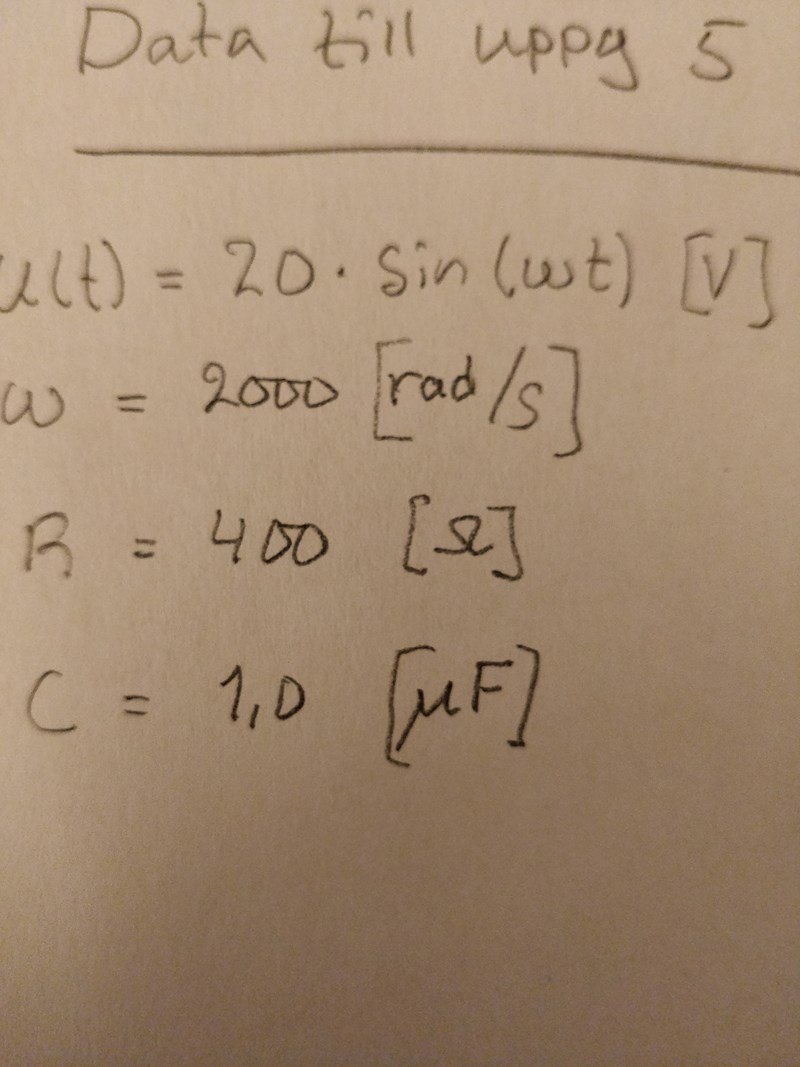 Data till uppg 5
u(t) = 20 · sin (ωt) [V]
ω = 2000 [rad/s]
R = 400 [Ω]
C = 1,0 [μF]